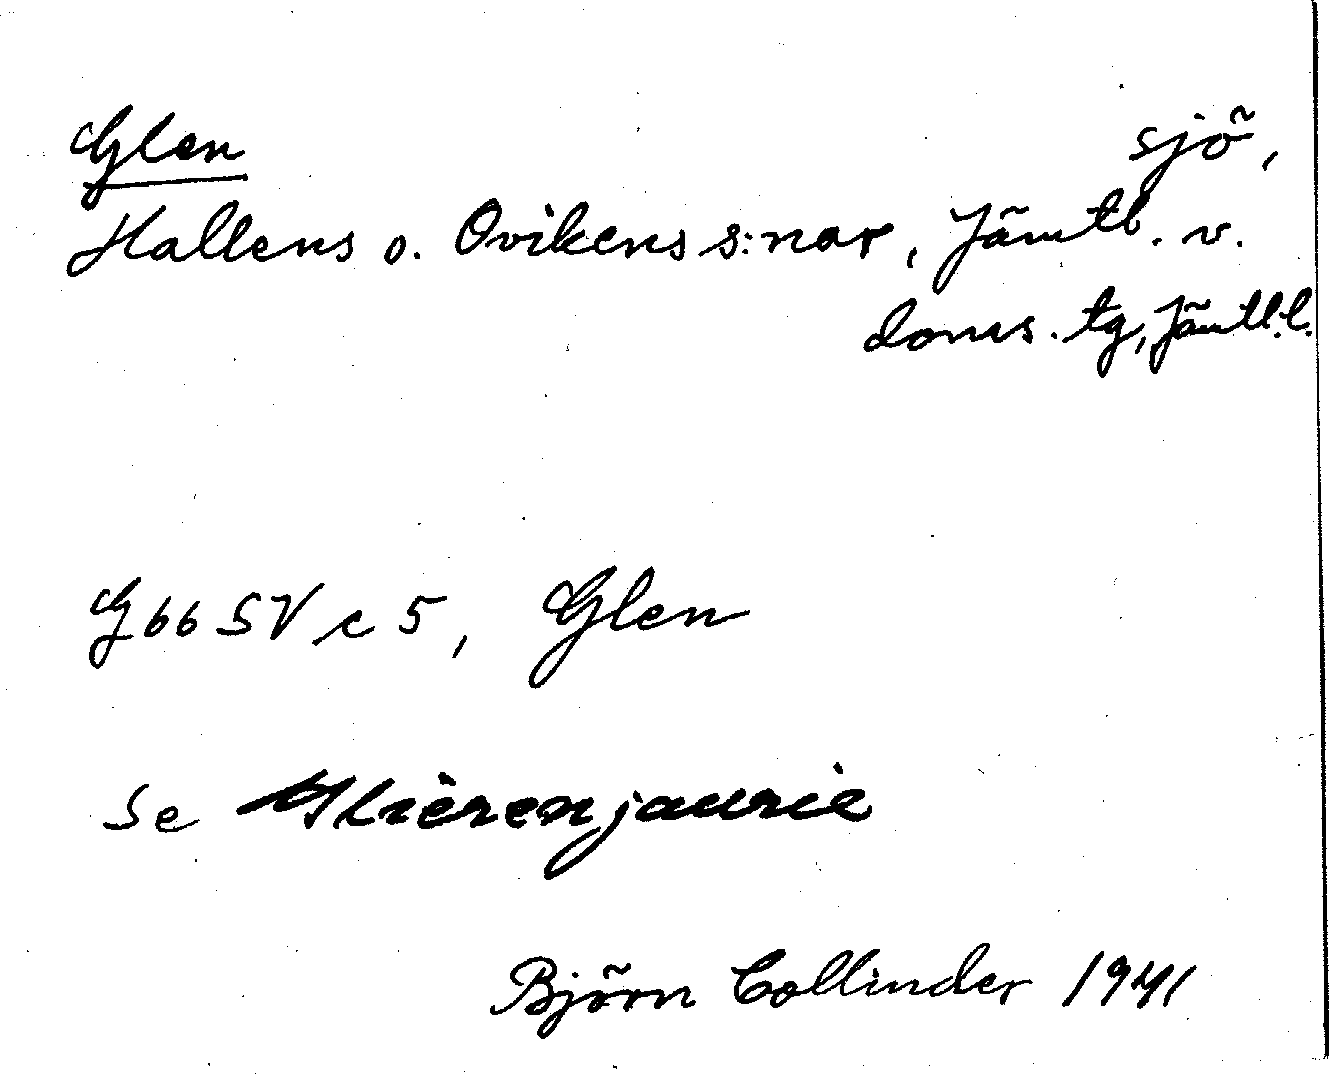 Glen sjö,
Hallens o. Ovikens s:nar, Jämtl. v.
doms. tg, Jämtl. l.
G 66 SV c 5, Glen
Se
Björn Collinder 1941